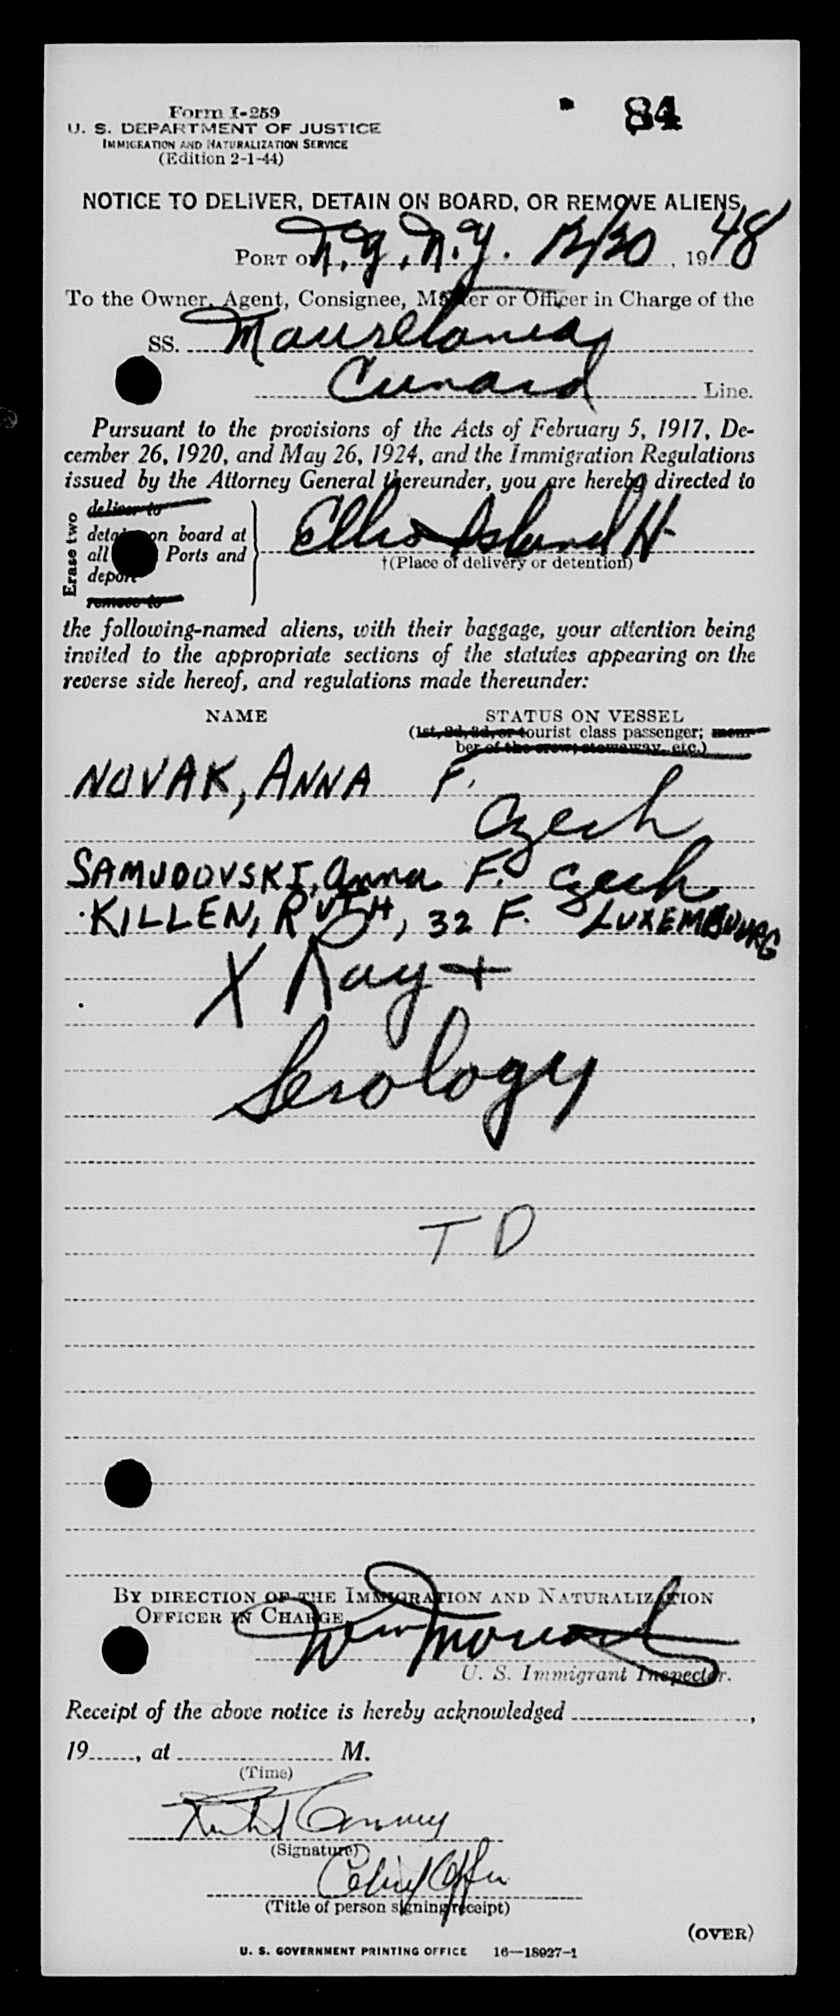 84
Form I-259
U. S. DEPARTMENT OF JUSTICE
IMMIGRATION AND NATURALIZATION SERVICE
(Edition 2-1-44)
NOTICE TO DELIVER, DETAIN ON BOARD, OR REMOVE ALIENS
PORT OF N.Y., N.Y. 12/20, 1948
To the Owner, Agent, Consignee, Master or Officer in Charge of the
SS. Mauretania
Cunard Line.
Pursuant to the provisions of the Acts of February 5, 1917, De-
cember 26, 1920, and May 26, 1924, and the Immigration Regulations
issued by the Attorney General thereunder, you are hereby directed to
Erase two
deliver to
detain on board at
all Ports and
deport
remove to
Ellis Island H.
†(Place of delivery or detention)
the following-named aliens, with their baggage, your attention being
invited to the appropriate sections of the statutes appearing on the
reverse side hereof, and regulations made thereunder:
NAME STATUS ON VESSEL
(1st, 2d, 3d, or tourist class passenger; mem-
ber of the crew; stowaway, etc.)
NOVAK, ANNA F.
Czech
SAMUDOVSKI, Anna F. Czech
KILLEN, RUTH, 32 F. LUXEMBOURG
X Ray +
Serology
T D
BY DIRECTION OF THE IMMIGRATION AND NATURALIZATION
OFFICER IN CHARGE
U. S. Immigrant Inspector.
Receipt of the above notice is hereby acknowledged ,
19 , at M.
(Time)
(Signature)
(Title of person signing receipt)
(OVER)
U. S. GOVERNMENT PRINTING OFFICE 16—18927-1